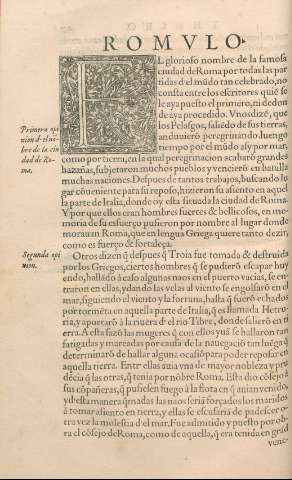 ROMULO.
EL glorioso nombre de la famosa
ciudad de Roma por todas las par
tidas d'el mũdo tan celebrado, no
consta entre los escritores quiē se
le aya puesto el primero, ni de don
de aya procedido. Vnos dizē, que
los Pelasgos, salidos de sus tierras,
anduuierō peregrinando luengo
tiempo por el mũdo assy por mar,
Primera opi
nion d'el nõ
bre de la ciu
dad de Ro-
ma.
como por tierra, en la qual peregrinacion acabarō grandes
hazañas, subjetaron muchos pueblos y vencierō en batalla
muchas naciones. Despues de tantos trabajos, buscando lu
gar cōueniente para su reposo, hizieron su asiento en aquel
la parte de Italia, donde oy esta situada la ciudad de Roma.
Y por que ellos eran hombres fuertes & bellicosos, en me
moria de su esfuerço pusieron por nombre al lugar donde
moraron Roma, que en lengua Griega quiere tanto dezir,
como es fuerço & fortaleça.
Segunda opi
nion.
Otros dizen q̃ despues q̃ Troia fue tomada & destruida
por los Griegos, ciertos hombres q̃ se pudierō escapar huy
endo, hallādo à caso algunas naos en el puerto vacias, se en
traron en ellas, y dando las velas al viento se engolfarō en el
mar, siguiendo el viento y la fortuna, hasta q̃ fuerō echados
por tormēta en aquella parte de Italia, q̃ es llamada Hetru-
ria, y aportarō à la riuera d'el rio Tibre, donde saliero en ti
erra. A esta sazō las mugeres q̃ con ellos yuā se hallarō tan
fatigadas y mareadas por causa de la nauegaciō tan luēga q̃
determinarō de hallar alguna ocasiō para poder reposar en
aquella tierra. Entr' ellas auia vna de mayor nobleza y pru
dēcia q̃ las otras, q̃ tenia por nōbre Roma. Esta dio cōsejo à
sus cōpañeras, q̃ pusiesen fuego à la flota en q̃ auian venido,
y d'esta manera q̃madas las naos seriā forçados los maridos
à tomar asiento en tierra, y ellas se escusariā de padescer o-
tra vez la molestia d'el mar. Fue admitido y puesto por ob-
ra el cōsejo de Roma, como de aquella, q̃ era tenida en grād
vene-